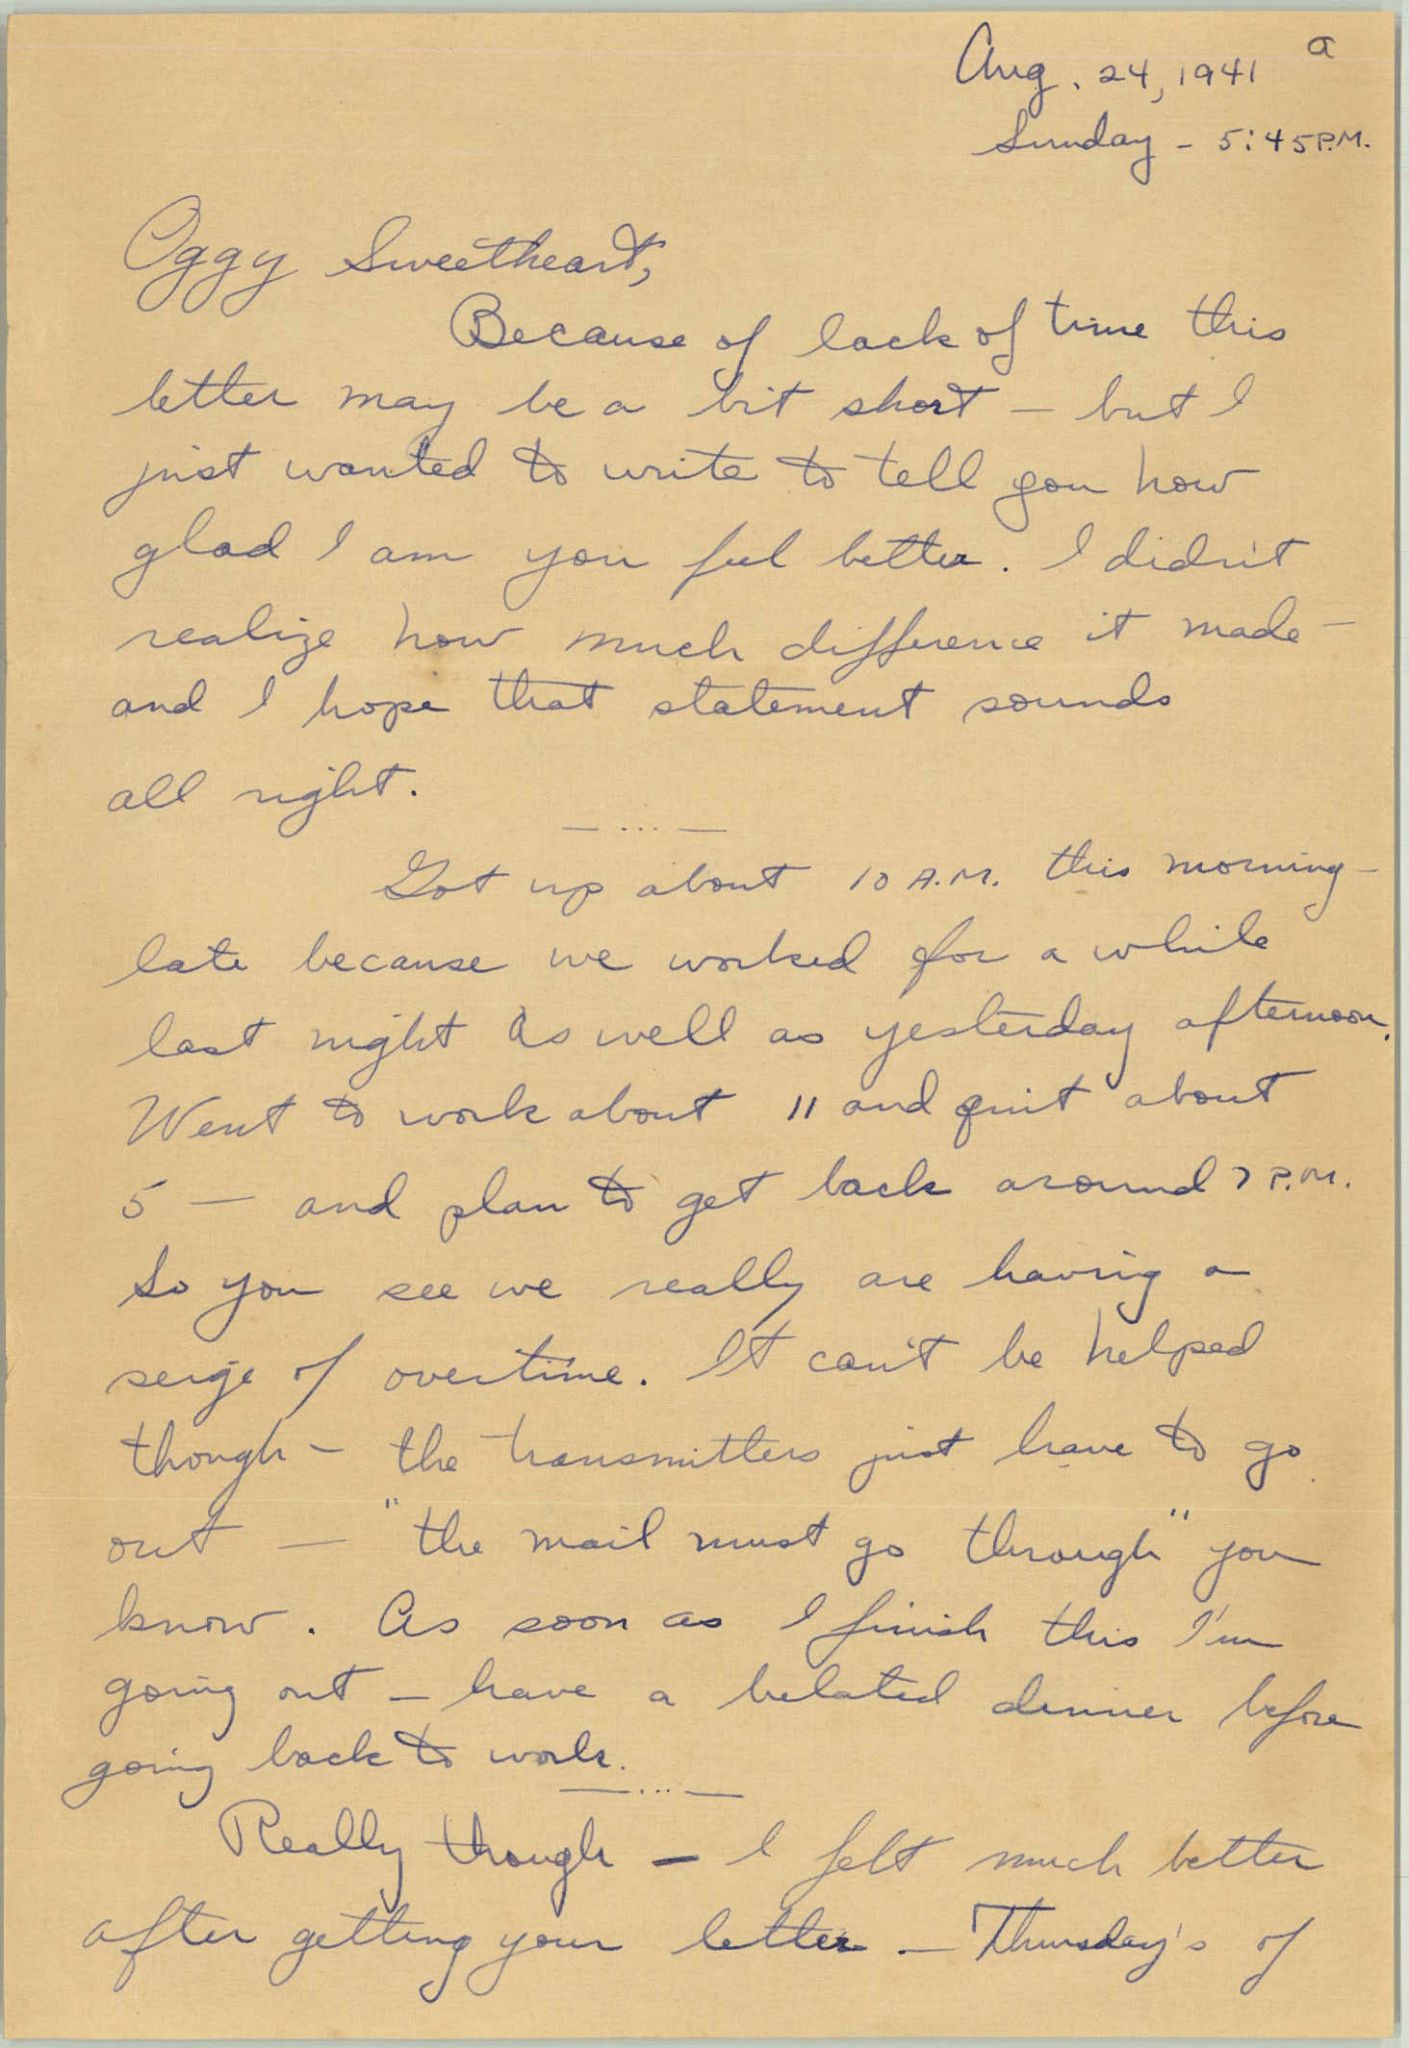 a
Aug. 24, 1941
Sunday - 5:45 P.M.
Oggy Sweetheart,
Because of lack of time this
letter may be a bit short - but I
just wanted to write to tell you how
glad I am you feel better. I didn't
realize how much difference it made -
and I hope that statement sounds
all right.
— ... —
Got up about 10 A.M. this morning -
late because we worked for a while
last night as well as yesterday afternoon.
Went to work about 11 and quit about
5 — and plan to get back around 7 P.M.
So you see we really are having a
serge of overtime. It can't be helped
though - the transmitters just have to go
out — "the mail must go through" you
know. As soon as I finish this I'm
going out - have a belated dinner before
going back to work.
— ... —
Really though - I felt much better
after getting your letter. - Thursday's of